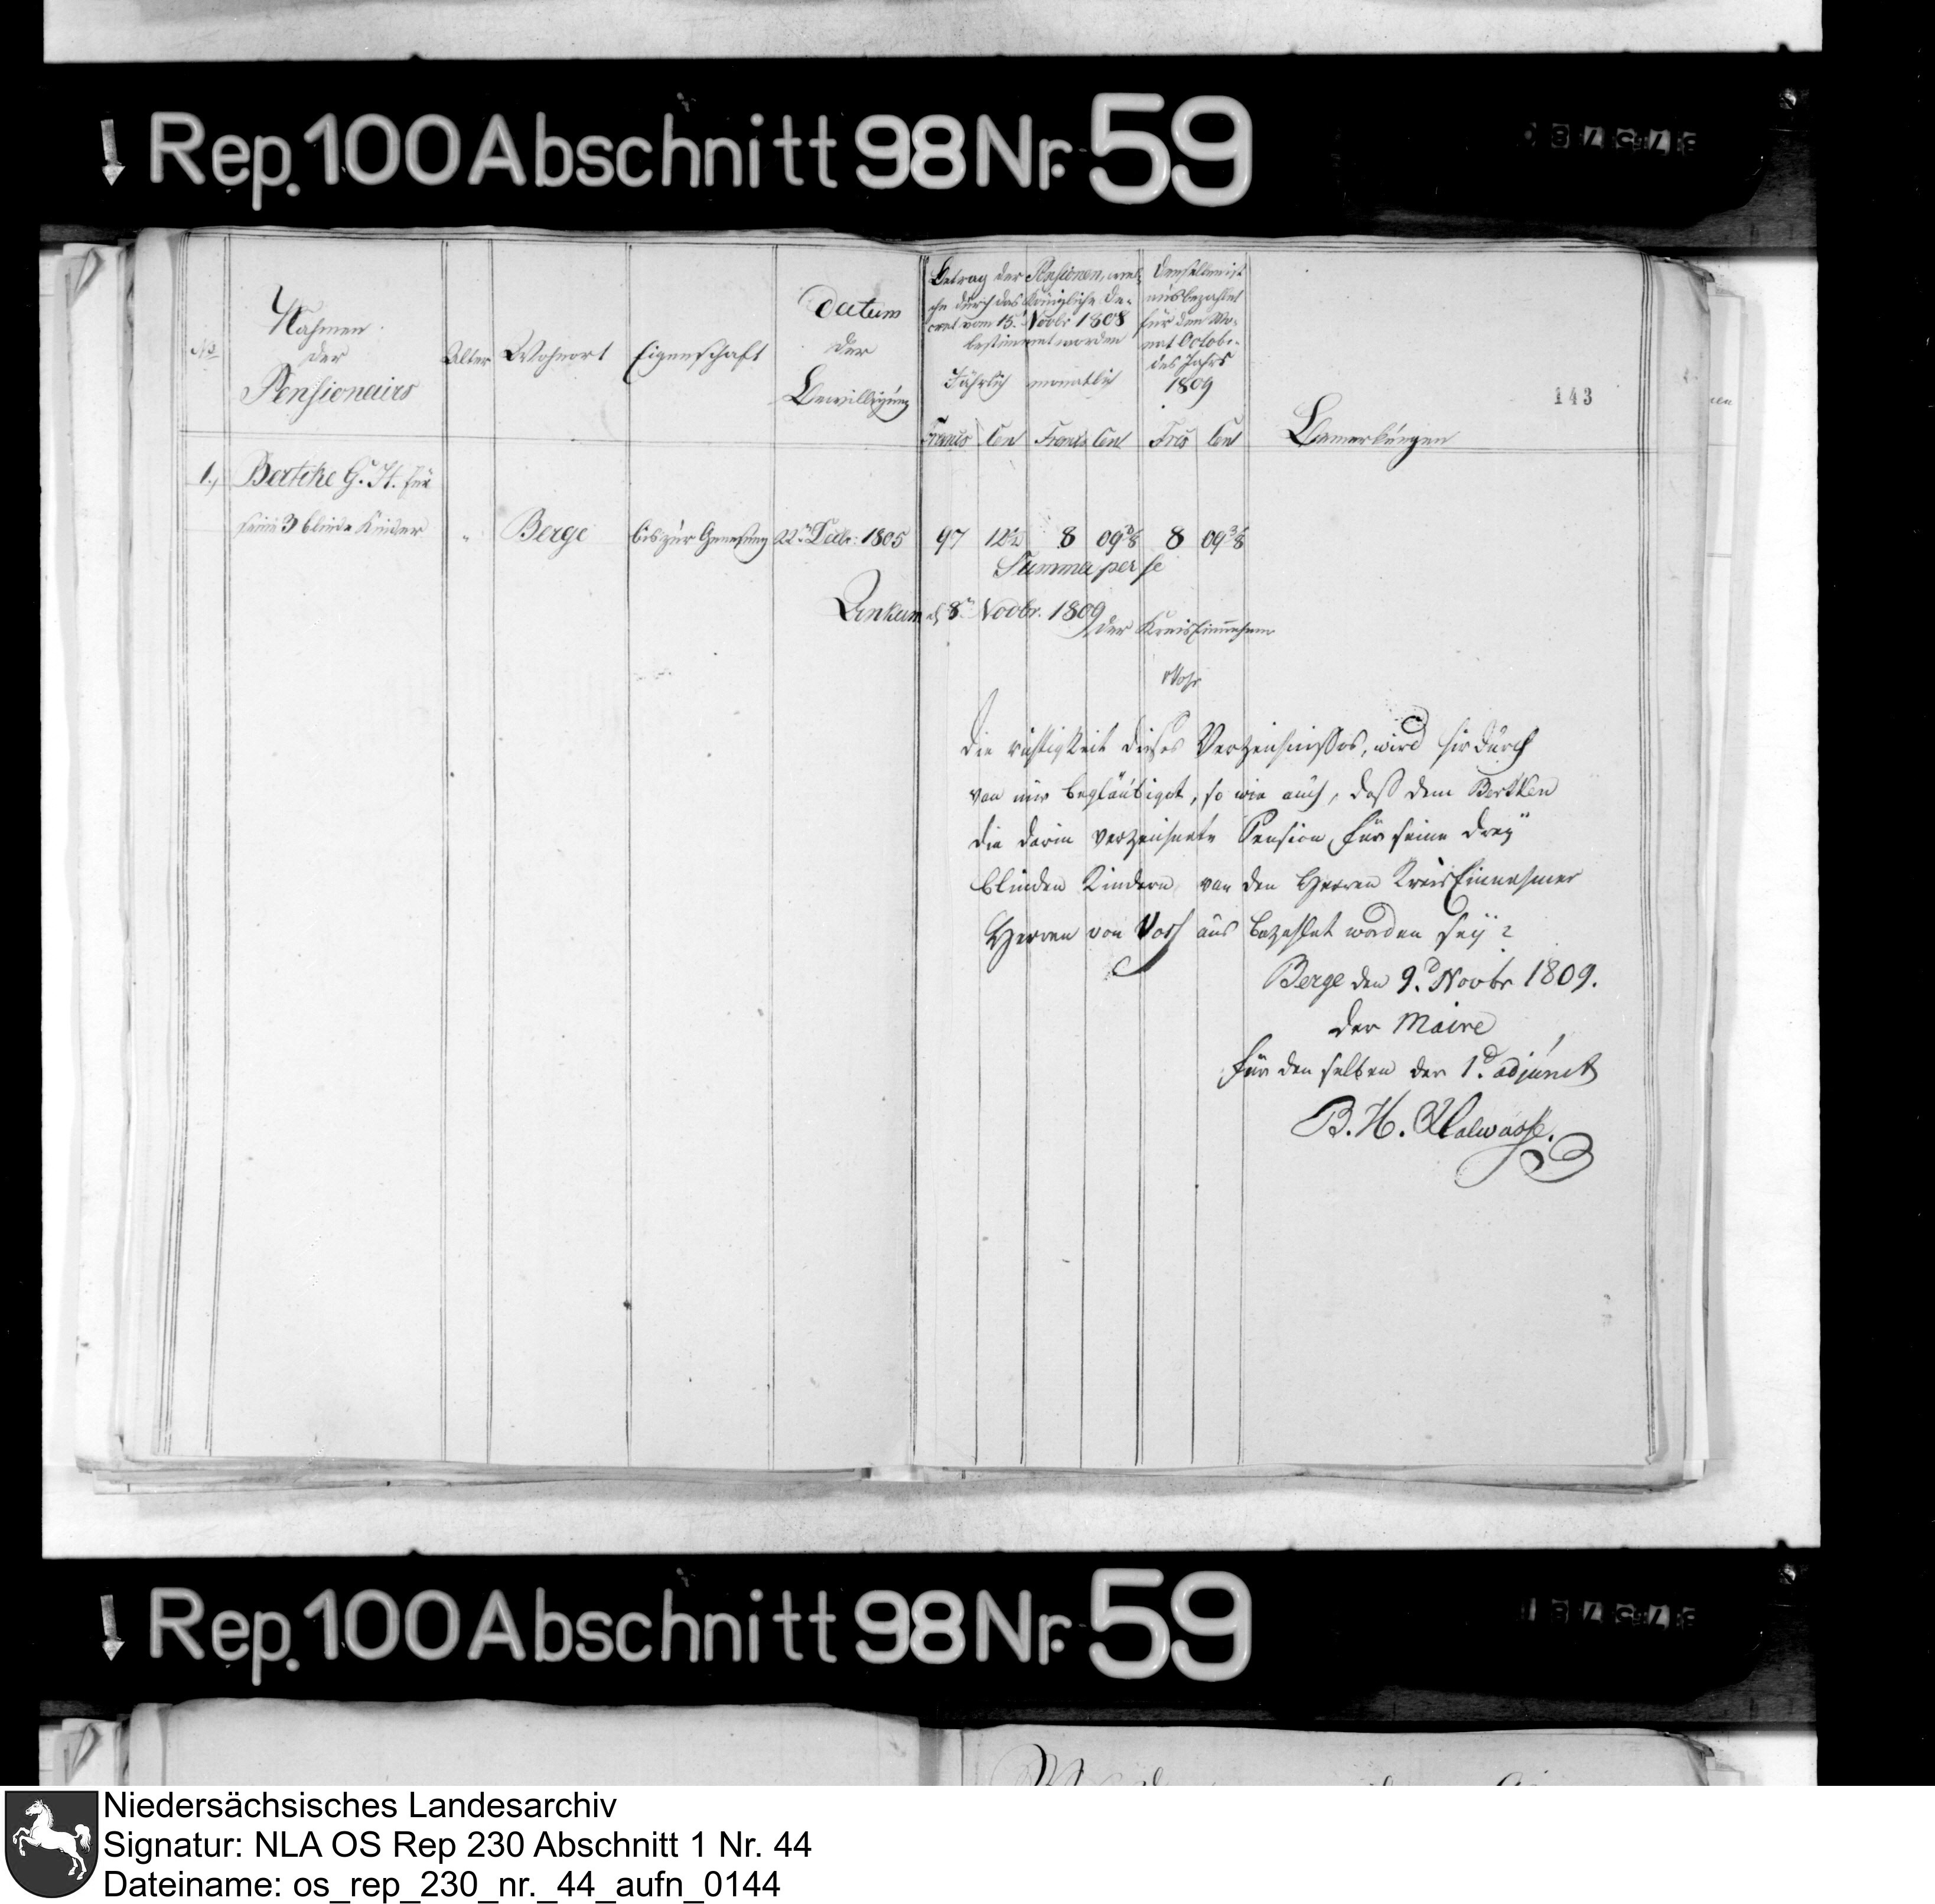 Rep. 100 Abschnitt 98 Nr. 59
143
No
Nahmen
der
Pensionairs
Alter
Wohnort
Eigenschaft
Datum
der
Bewilligung
Betrag der Pensionen, wel-
che durch das Königliche De-
cret vom 15. Novbr 1808
bestimmt worden
Jährlich monatlich
Franks Cent Franks Cent
Denselben ist
ausbezahlet
für den Mo-
nat Octobr.
des Jahrs
1809
Frcs Cent
Bemerkungen
1., Bertke G. H. für
seine 3 blinde Kinder " Berge bis zur Genesung 22n Decbr: 1805 97 12½ 8 09⅜ 8 09⅜
Summa per se
Ankum d 8n Novbr. 1809
der KreisEinnehmer
Voss
Die richtigkeit dieses Verzeichnisses, wird hirdurch
von mir begläubiget, so wie auch, daß dem Bertken
die darin verzeichnete Pension für seine drey
blinden Kindern von den Herren KreisEinnehmer
Herren von Voss aus bezahlet worden seÿ
Berge den 9.d Novbr 1809.
Der Maire
für denselben der 1.d adjunct
B. H.
Rep. 100 Abschnitt 98 Nr. 59
Niedersächsisches Landesarchiv
Signatur: NLA OS Rep 230 Abschnitt 1 Nr. 44
Dateiname: os_rep_230_nr._44_aufn_0144